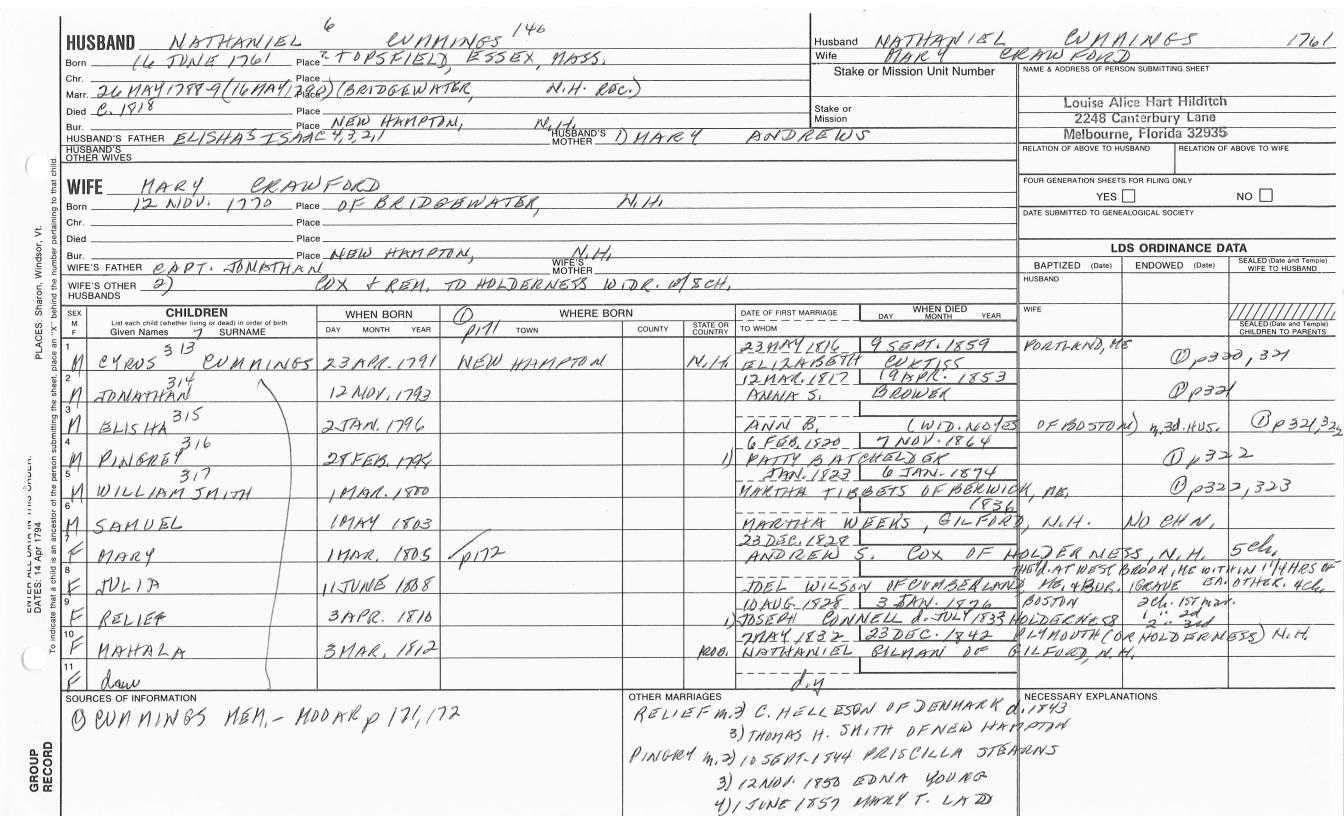 HUSBAND NATHANIEL 6 CUMMINGS 146
Born 16 JUNE 1761 Place ? TOPSFIELD, ESSEX, MASS.
Chr. Place
Marr. 26 MAY 1788-9 (16 MAY 1790) Place (BRIDGEWATER, N.H. REC.)
Died C. 1818 Place
Bur. Place NEW HAMPTON, N.H.
HUSBAND'S FATHER ELISHA 5 ISAAC 4,3,2,1 HUSBAND'S MOTHER 1) MARY ANDREWS
HUSBAND'S OTHER WIVES
WIFE MARY CRAWFORD
Born 12 NOV. 1770 Place OF BRIDGEWATER, N.H.
Chr. Place
Died Place
Bur. Place NEW HAMPTON, N.H.
WIFE'S FATHER CAPT. JONATHAN WIFE'S MOTHER
WIFE'S OTHER HUSBANDS 2) COX & REM. TO HOLDERNESS WIDR. W/8CH.
Husband NATHANIEL CUMMINGS 1761
Wife MARY CRAWFORD
Stake or Mission Unit Number
Stake or Mission
NAME & ADDRESS OF PERSON SUBMITTING SHEET
Louise Alice Hart Hilditch
2248 Canterbury Lane
Melbourne, Florida 32935
RELATION OF ABOVE TO HUSBAND RELATION OF ABOVE TO WIFE
FOUR GENERATION SHEETS FOR FILING ONLY
YES NO
DATE SUBMITTED TO GENEALOGICAL SOCIETY
LDS ORDINANCE DATA
BAPTIZED (Date) ENDOWED (Date) SEALED (Date and Temple) WIFE TO HUSBAND
HUSBAND
WIFE
SEALED (Date and Temple) CHILDREN TO PARENTS
SEX M F CHILDREN List each child (whether living or dead) in order of birth Given Names 7 SURNAME
WHEN BORN DAY MONTH YEAR
① p171 WHERE BORN TOWN COUNTY STATE OR COUNTRY
DATE OF FIRST MARRIAGE TO WHOM WHEN DIED DAY MONTH YEAR
1 23 MAY 1816 9 SEPT. 1859 PORTLAND, ME
M CYRUS 313 CUMMINGS 23 APR. 1791 NEW HAMPTON N.H. ELIZABETH CURTISS ① p320, 321
2 12 MAR. 1817 19 APR. 1853
M JONATHAN 314 12 NOV. 1793 ANNA S. BROWER ① p321
3
M ELISHA 315 2 JAN. 1796 ANN B. (WID. NOYES OF BOSTON) m. 3d. HUS. ① p321, 322
4 6 FEB. 1820 7 NOV. 1864
M PINGREY 316 28 FEB. 1798 1) PATTY BATCHELDER ① p322
5 JAN. 1823 6 JAN. 1874
M WILLIAM SMITH 317 1 MAR. 1800 MARTHA TIBBETS OF BERWICK, ME. ① p322, 323
6 1836
M SAMUEL 1 MAY 1803 MARTHA WEEKS, GILFORD, N.H. NO CHN.
7 23 DEC. 1828
F MARY 1 MAR. 1805 p172 ANDREW S. COX OF HOLDERNESS, N.H. 5 ch.
8 THEY d. AT WESTBROOK, ME WITHIN 1 1/4 HRS OF
F JULIA 11 JUNE 1808 JOEL WILSON OF CUMBERLAND ME, & BUR. 1 GRAVE EA. OTHER. 4 ch.
9 10 AUG 1828 3 JAN. 1826 BOSTON 2 ch. 1st mar.
F RELIEF 3 APR. 1810 1) JOSEPH CONNELL d. JULY 1833 HOLDERNESS 1 " 2d 2 " 3rd
10 7 MAY 1832 23 DEC. 1842 PLYMOUTH (OR HOLDERNESS) N.H.
F MAHALA 3 MAR. 1812 PROB. NATHANIEL GILMAN OF GILFORD, N.H.
11
F dau d.y
SOURCES OF INFORMATION
① CUMMINGS MEM. - MOOAR p 171, 172
OTHER MARRIAGES
RELIEF m. 2) C. HELLESON OF DENMARK d. 1843
3) THOMAS H. SMITH OF NEW HAMPTON
PINGRY m. 2) 10 SEPT. 1844 PRISCILLA STEARNS
3) 12 NOV. 1850 EDNA YOUNG
4) 1 JUNE 1857 MARY T. LADD
NECESSARY EXPLANATIONS
PLACES: Sharon, Windsor, Vt.
To indicate that a child is an ancestor of the person submitting the sheet, place an "X" behind the number pertaining to that child.
DATES: 14 Apr 1794
GROUP RECORD